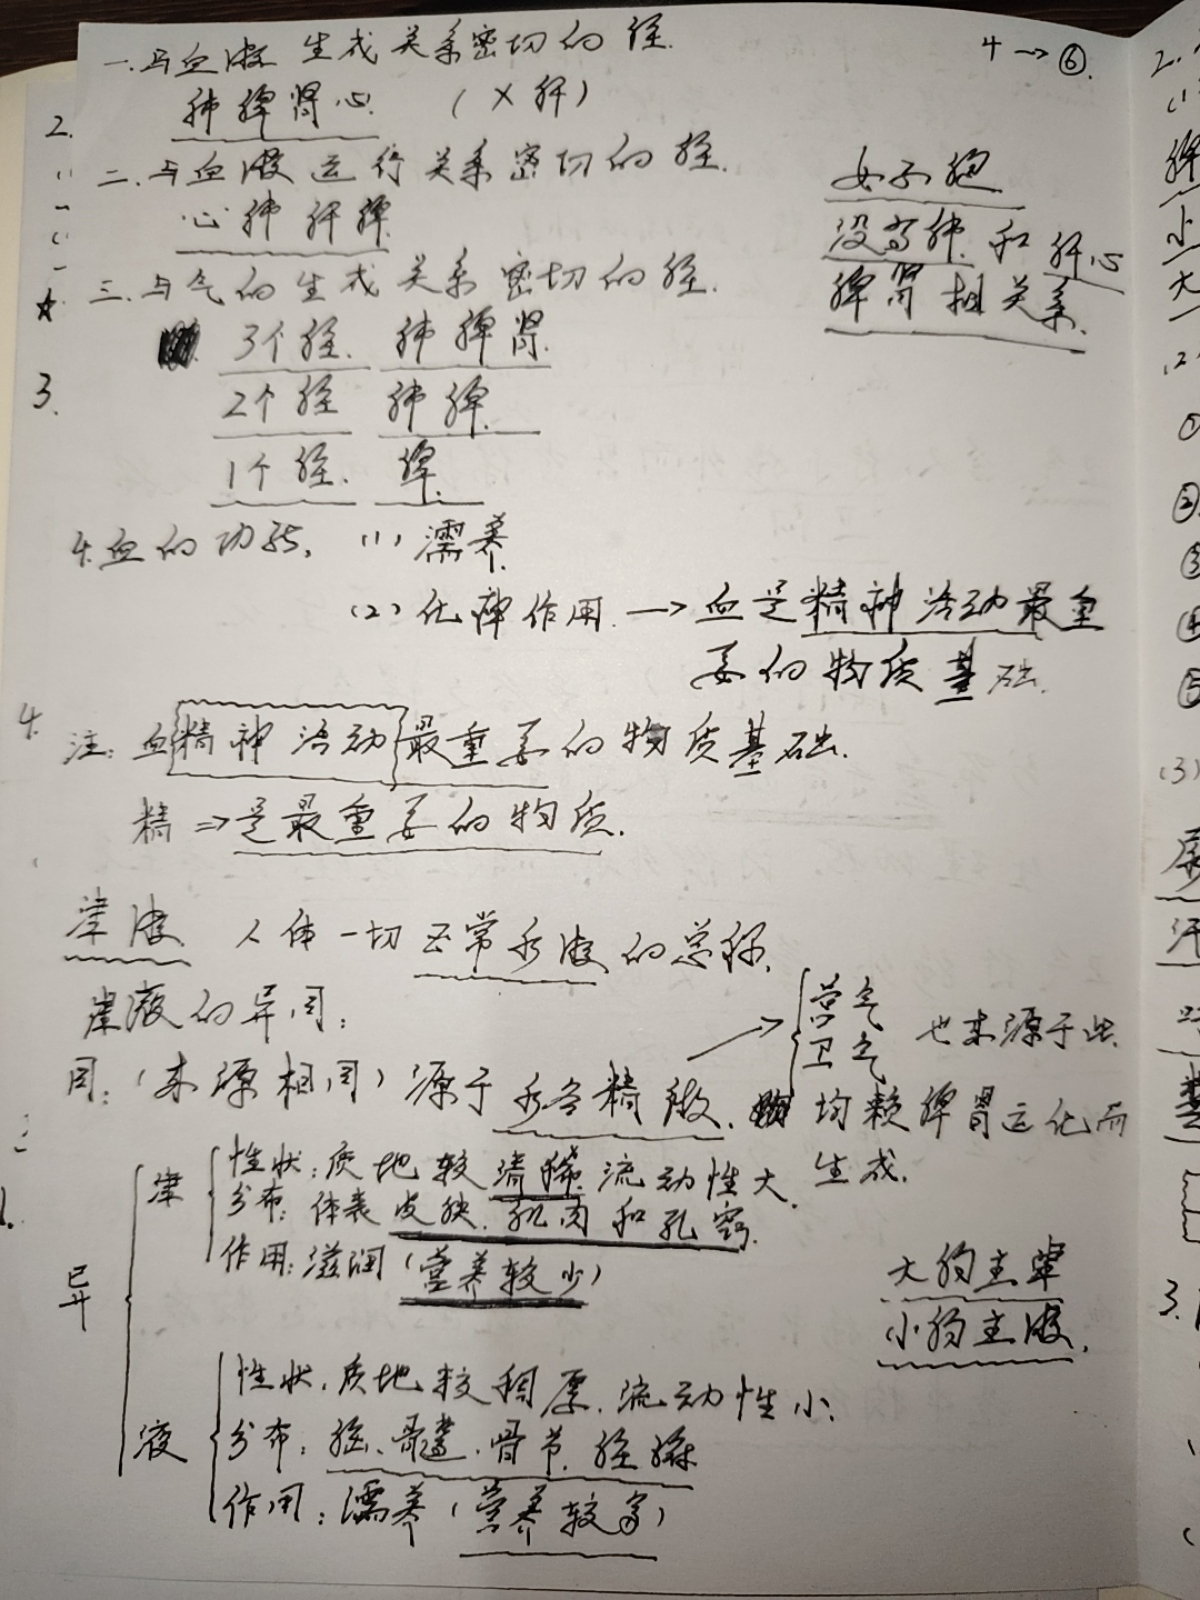 4→⑥.
一.与血液生成关系密切的经.
肺脾肾心 (×肝)
二.与血液运行关系密切的经.
心肺肝脾
女子胞
没有肺和肝心
脾肾相关系.
三.与气的生成关系密切的经.
3个经. 肺脾肾.
2个经 肺脾.
1个经. 脾.
4.血的功能. (1)濡养.
(2)化神作用→血是精神活动最重
要的物质基础.
注:血精神活动最重要的物质基础.
精⇒是最重要的物质.
津液 人体一切正常水液的总称.
津液的异同:
营气
卫气 也来源于此
同:(来源相同)源于水谷精微. 均赖脾胃运化而
生成.
异
津
性状:质地较清稀.流动性大.
分布:体表皮肤.肌肉和孔窍.
作用:滋润(营养较少)
大肠主津
小肠主液.
液
性状.质地较稠厚.流动性小.
分布:脑、骨髓.骨节.
作用:濡养(营养较多)